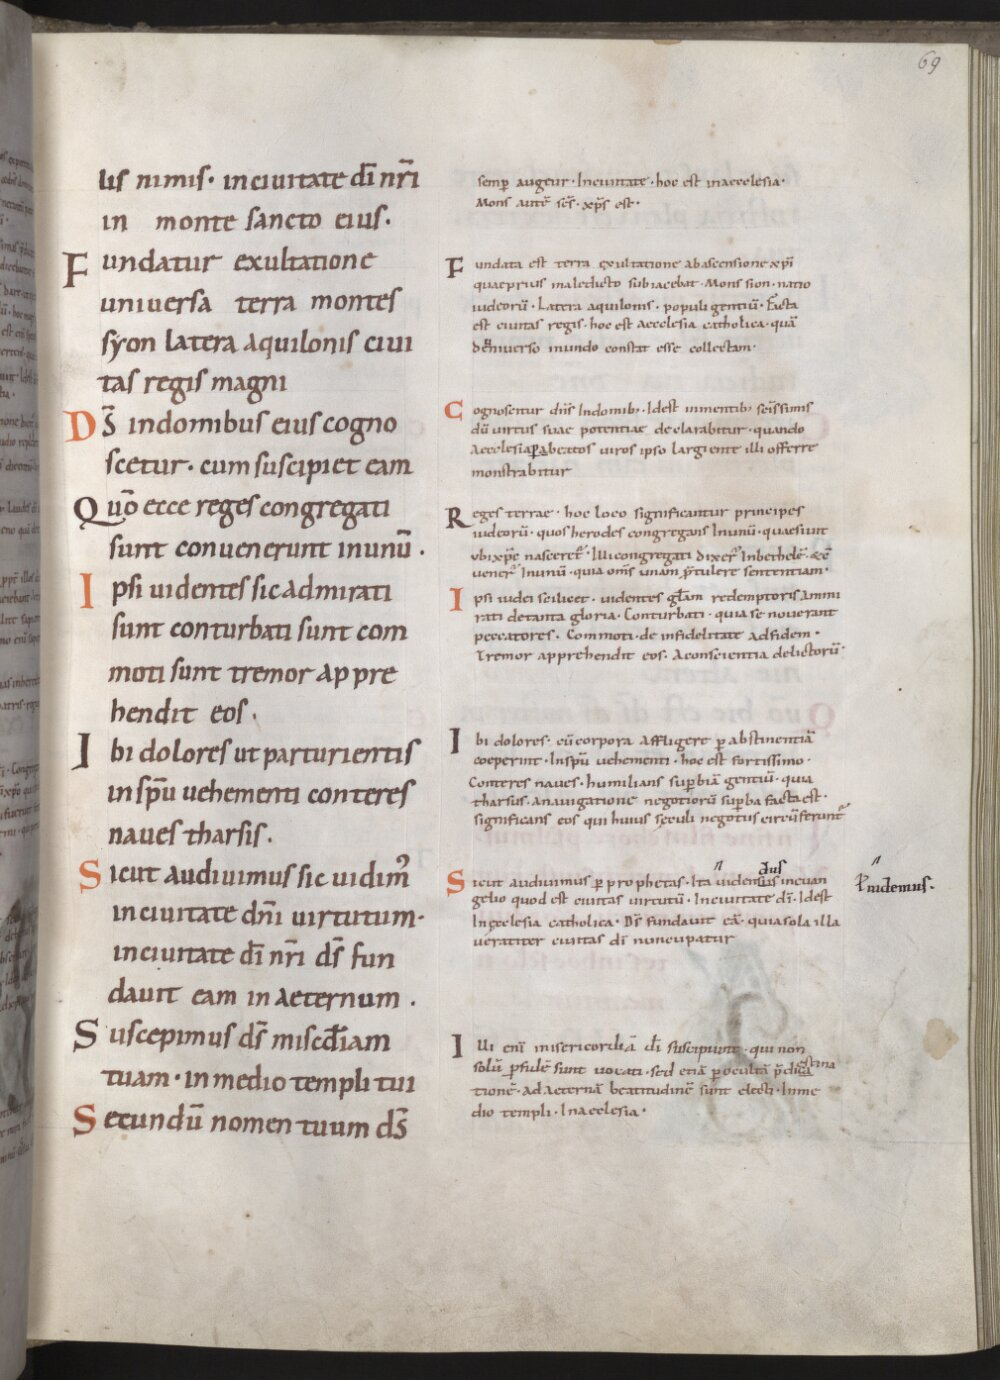 69
lis nimis· inciuitate dī nr̄i
in monte sancto eius·
Fundatur exultatione
uniuersa terra montes
syon latera aquilonis ciui
tas regis magni
Ds̄ indomibus eius cogno
scetur· cum suscipiet eam
Quō ecce reges congregati
sunt conuenerunt inunū·
Ipsi uidentes sic admirati
sunt conturbati sunt com
moti sunt tremor appre
hendit eos·
Ibi dolores ut parturientis
inspū uehementi conteres
naues tharsis·
Sicut audiuimus sic uidim᾽
inciuitate dn̄i uirtutum·
inciuitate dī nr̄i ds̄ fun
dauit eam in aeternum·
Suscepimus ds̄ miscd̄iam
tuam· in medio templi tui
Secundū nomen tuum ds̄
semꝑ augetur· Inciuitate· hoc est inaecclesia·
Mons autē scs̄· xp̄s est·
Fundata est terra exultatione abascensione xp̄i
quae prius maledicto subiacebat· Mons sion· natio
iudeorū· Latera aquilonis· populi gentiū· Facta
est ciuitas regis· hoc est aecclesia catholica· quā
deuniuerso mundo constat esse collectam·
Cognoscitur dn̄s Indomib; Idest inmentib; sc̄issimis
dū uirtus suae potentiae declarabitur· quando
aecclesia ꝑbeatos uiros ipso largiente illi offerre
monstrabitur
Reges terrae· hoc loco significantur principes
iudeorū· quos herodes congregans Inunū· quaesiuit
ubi xp̄c nasceret᾽· Illi congregati dixer᾽ Inbethleē· &c̄
uener᾽ Inunū· quia om̄s unam ꝓtulere sententiam·
Ipsi iudei scilicet· uidentes gl̄am redemptoris ammi
rati detanta gloria· Conturbati· quia se nouerant
peccatores· Commoti· de infidelitate adfidem·
Tremor apprehendit eos· Aconscientia delictorū·
Ibi dolores· cū corpora affligere ꝑ abstinentiā
coeperint· Inspū uehementi· hoc est fortissimo·
Conteres naues· humilians suꝑbiā gentiū· quia
tharsus· anauigatione negotiorū suꝑba facta est·
significans eos qui huius sęculi negotiis circūferunt᾽
dus
Sicut audiuimus ꝑ prophetas· Ita uidensius ineuan ꝉ uidemus·
gelio quod est ciuitas uirtutū· Inciuitate dī· Idest
Inęcclesia catholica· Ds̄ fundauit eā· quia sola illa
ueraciter ciuitas dī nuncupatur
Illi enī misericordiā dī suscipiunt· qui non
solū ꝑ fidē sunt uocati· sed etiā ꝑ occultā p̄dica estina
tionē· ad aeternā beatitudinē sunt electi· Inme
dio templi· Inaecclesia·